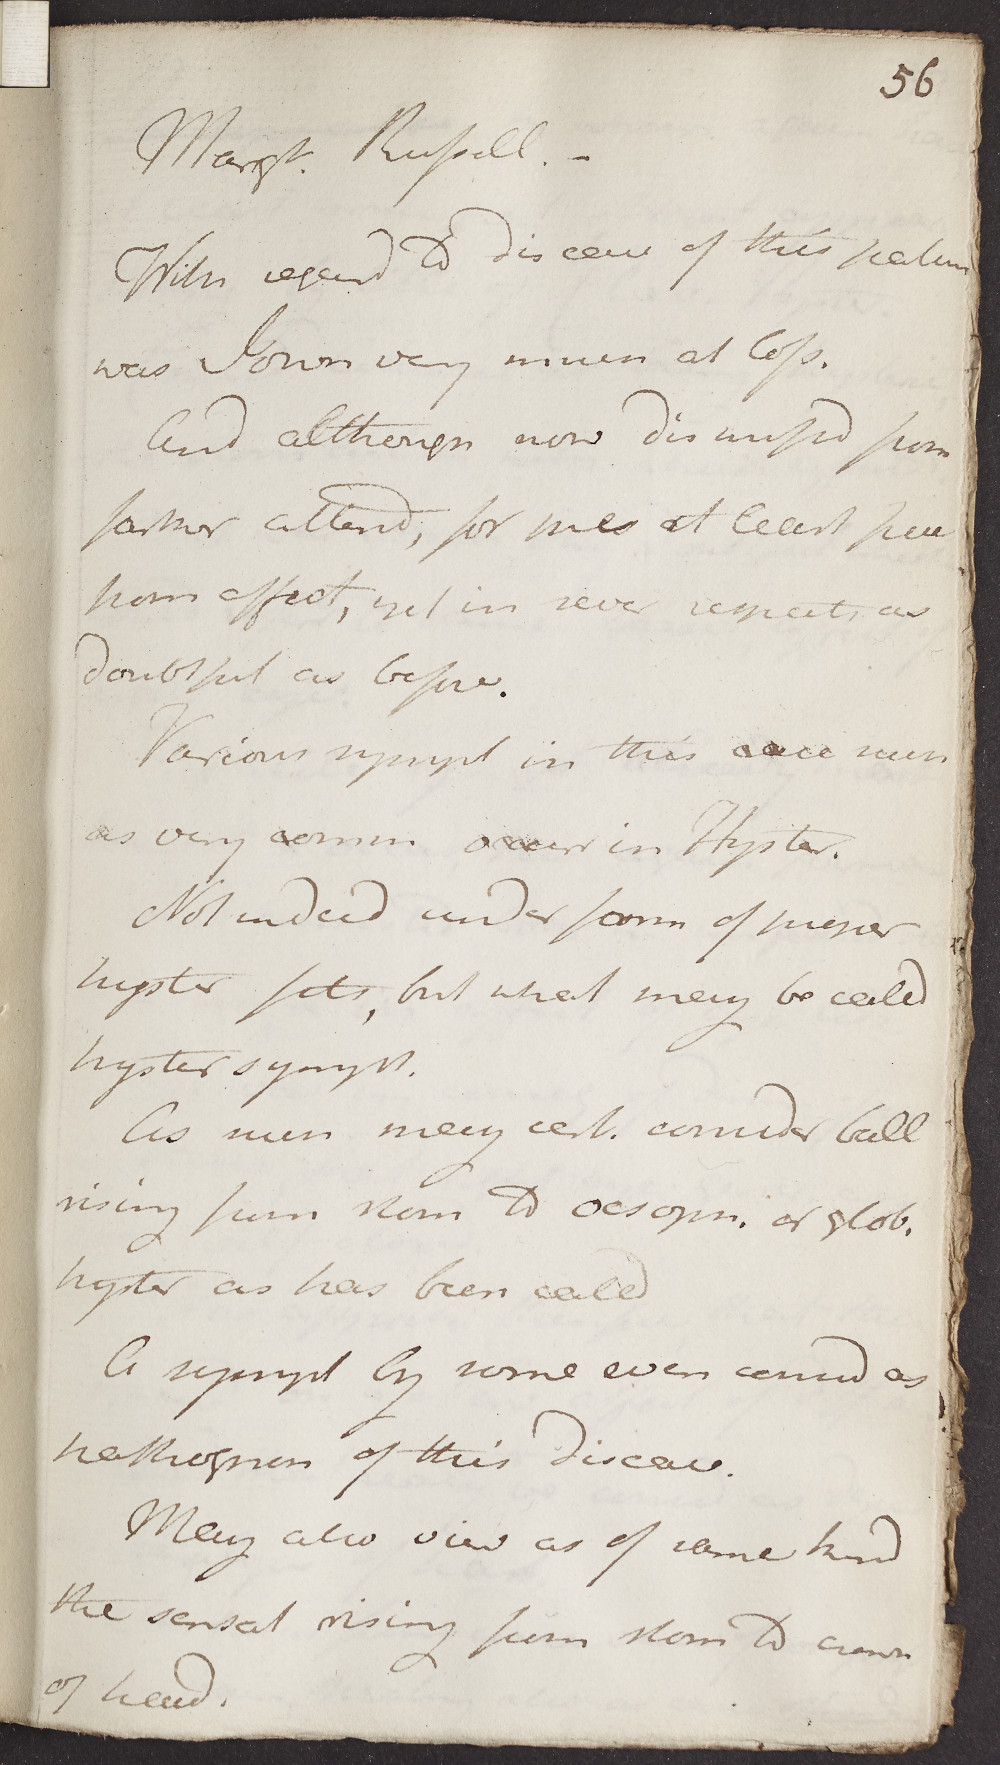 56
Margt. Russell. -
With regard to disease of this patien
was I own very much at loss.
And although now dismissd from
farther attend, for mes at least free
from affect, yet in sever respects as
doubtful as before.
Various sympt in this case such
as very comm occur in Hyster.
Not indeed under form of proper
hyster fits, but what may be called
hyster sympt.
As such may cert. consider ball
rising from stom to oesoph. or glob.
hyster as has been called
A sympt by some even consid as
pathognom of this disease.
May also view as of same kind
the sensat rising from stom to crown
of head.